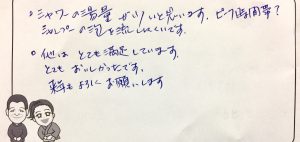 ○ シャワーの湯量が少ないと思います。ピーク時間帯?
シャンプーの泡を流しにくいです。
○ 他はとても満足しています。
とてもおいしかったです。
来年もよろしくお願いします